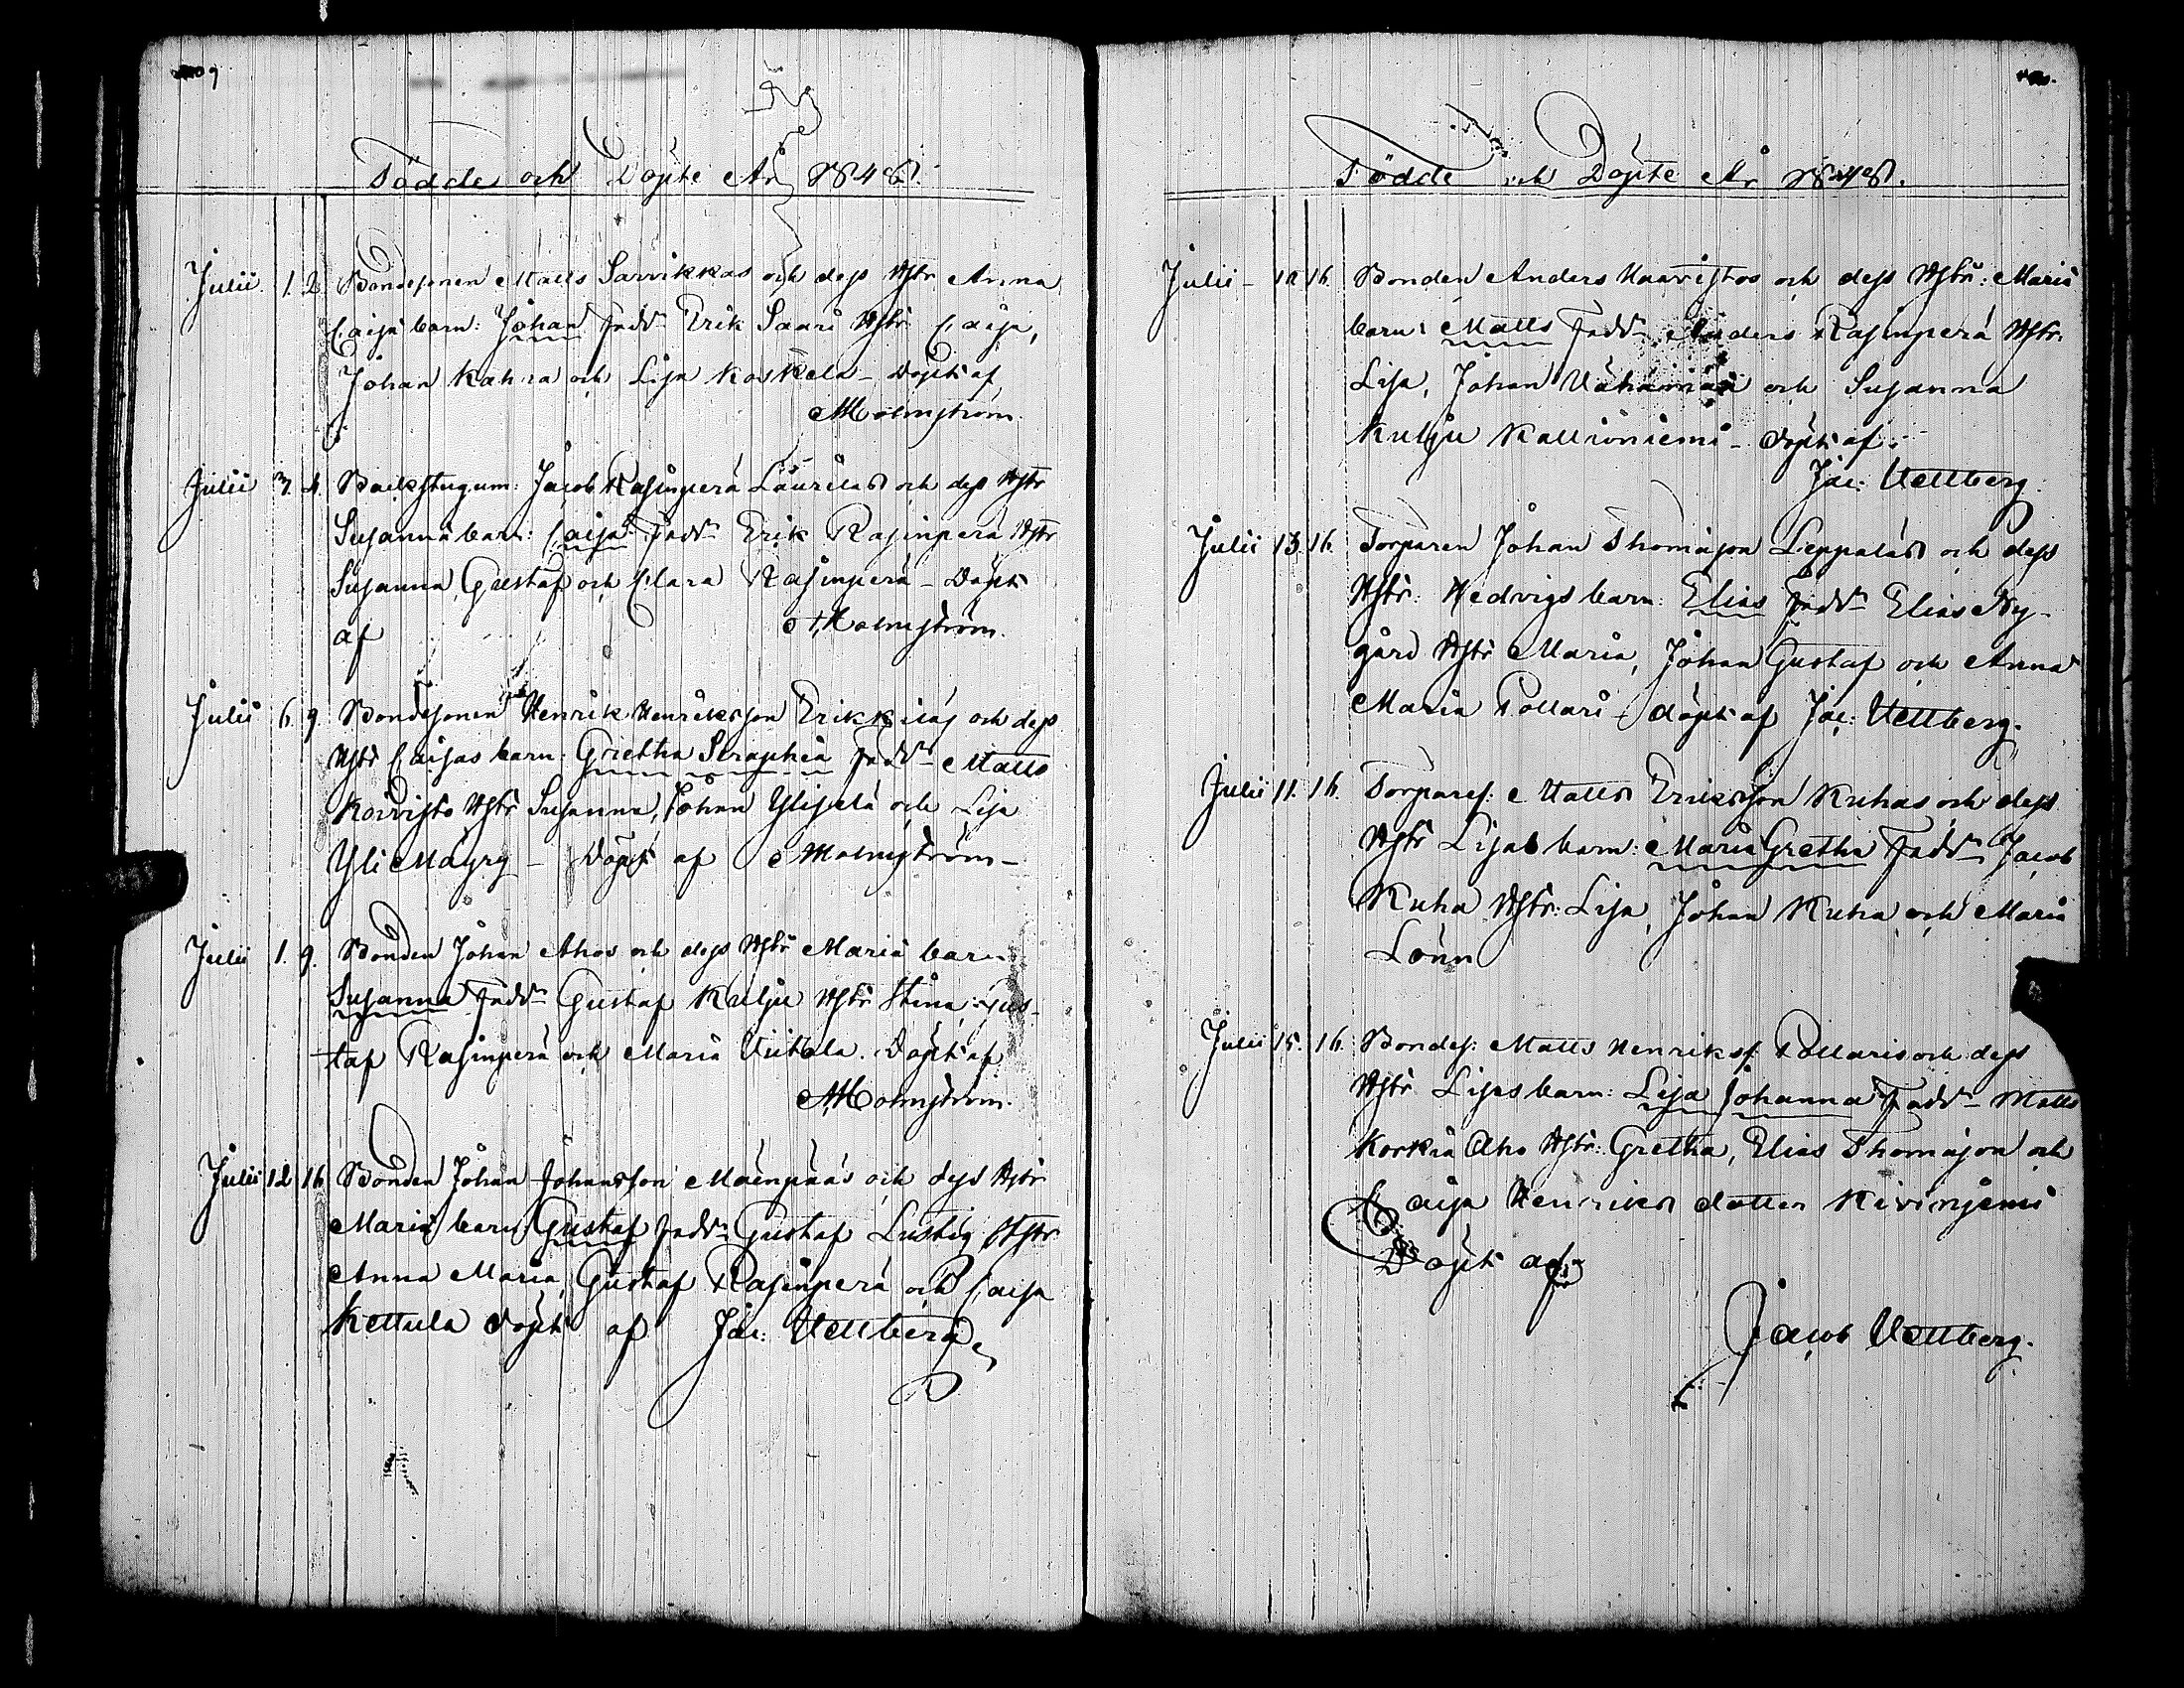 Födde och Döpte År 1848.
Julii. 1. 2. Bondesonen Matts Sarvikkas och dess Hstr Anna
Caisa barn: Johan Fadd: Erik Saari Hstr Caisa,
Johan Kahra och Lisa Koskela – Döpt af
A Holmström.
Julii 3. 4. Backstugum: Jacob Rasinperä Laurilas och dess Hstr
Susanna barn: Caisa Fadd: Erik Rasinperä Hstr
Susanna, Gustaf och Clara Rasinperä – Döpt
af A Holmström.
Julii 6. 9. Bondesonen Henrik Henriksson Erkkiläs och dess
Hstr Caisas barn: Gretha Seraphia Fadd: Matts
Koivisto Hstr Susanna, Johan Ylipelä och Lisa
Yli Mäyry – Döpt af A Holmström –
Julii 1. 9. Bonden Johan Ahos och dess Hstr Maria barn
Susanna Fadd: Gustaf Kulju Hstr Stina, Gus-
taf Rasinperä och Maria Viitala. Döpt af
A Holmström.
Julii 12 16 Bonden Johan Johansson Mäenpääs och dess Hstr
Maria barn Gustaf Fadd: Gustaf Lustig Hstr
Anna Maria, Gustaf Rasinperä och Caisa
Kettula döpt af Jac: Wellberg
Födde och Döpte År 1848.
Julii – 10 16. Bonden Anders Haavistos och dess Hstr: Maria
barn: Matts Fadd: Anders Rasinperä Hstr.
Lisa, Johan Vähämäki och Susanna
Kulju Kallioniemi – döpt af
Jac: Wellberg.
Julii 13. 16. Torparen Johan Thomasson Leppäläs och dess
Hstr: Hedvigs barn: Elias Fadd: Elias Ny-
gård Hstr Maria, Johan Gustaf och Anna
Maria Pollari – döpt af Jac: Wellberg.
Julii 11. 16. Torpares: Matts Eriksson Kuhas och dess
Hstr Lisas barn: Maria Gretha Fadd: Jacob
Kuha Hstr: Lisa, Johan Kuha och Maria
Lönn
Julii 15. 16. Bondes: Matts Henrikss Pollaris och dess
Hstr Lisas barn: Lisa Johanna Fadd – Matts
Korkia Aho Hstr: Gretha, Elias Thomasson och
Caisa Henriks dotter Kiviniemi
Döpt af
Jacob Wellberg.